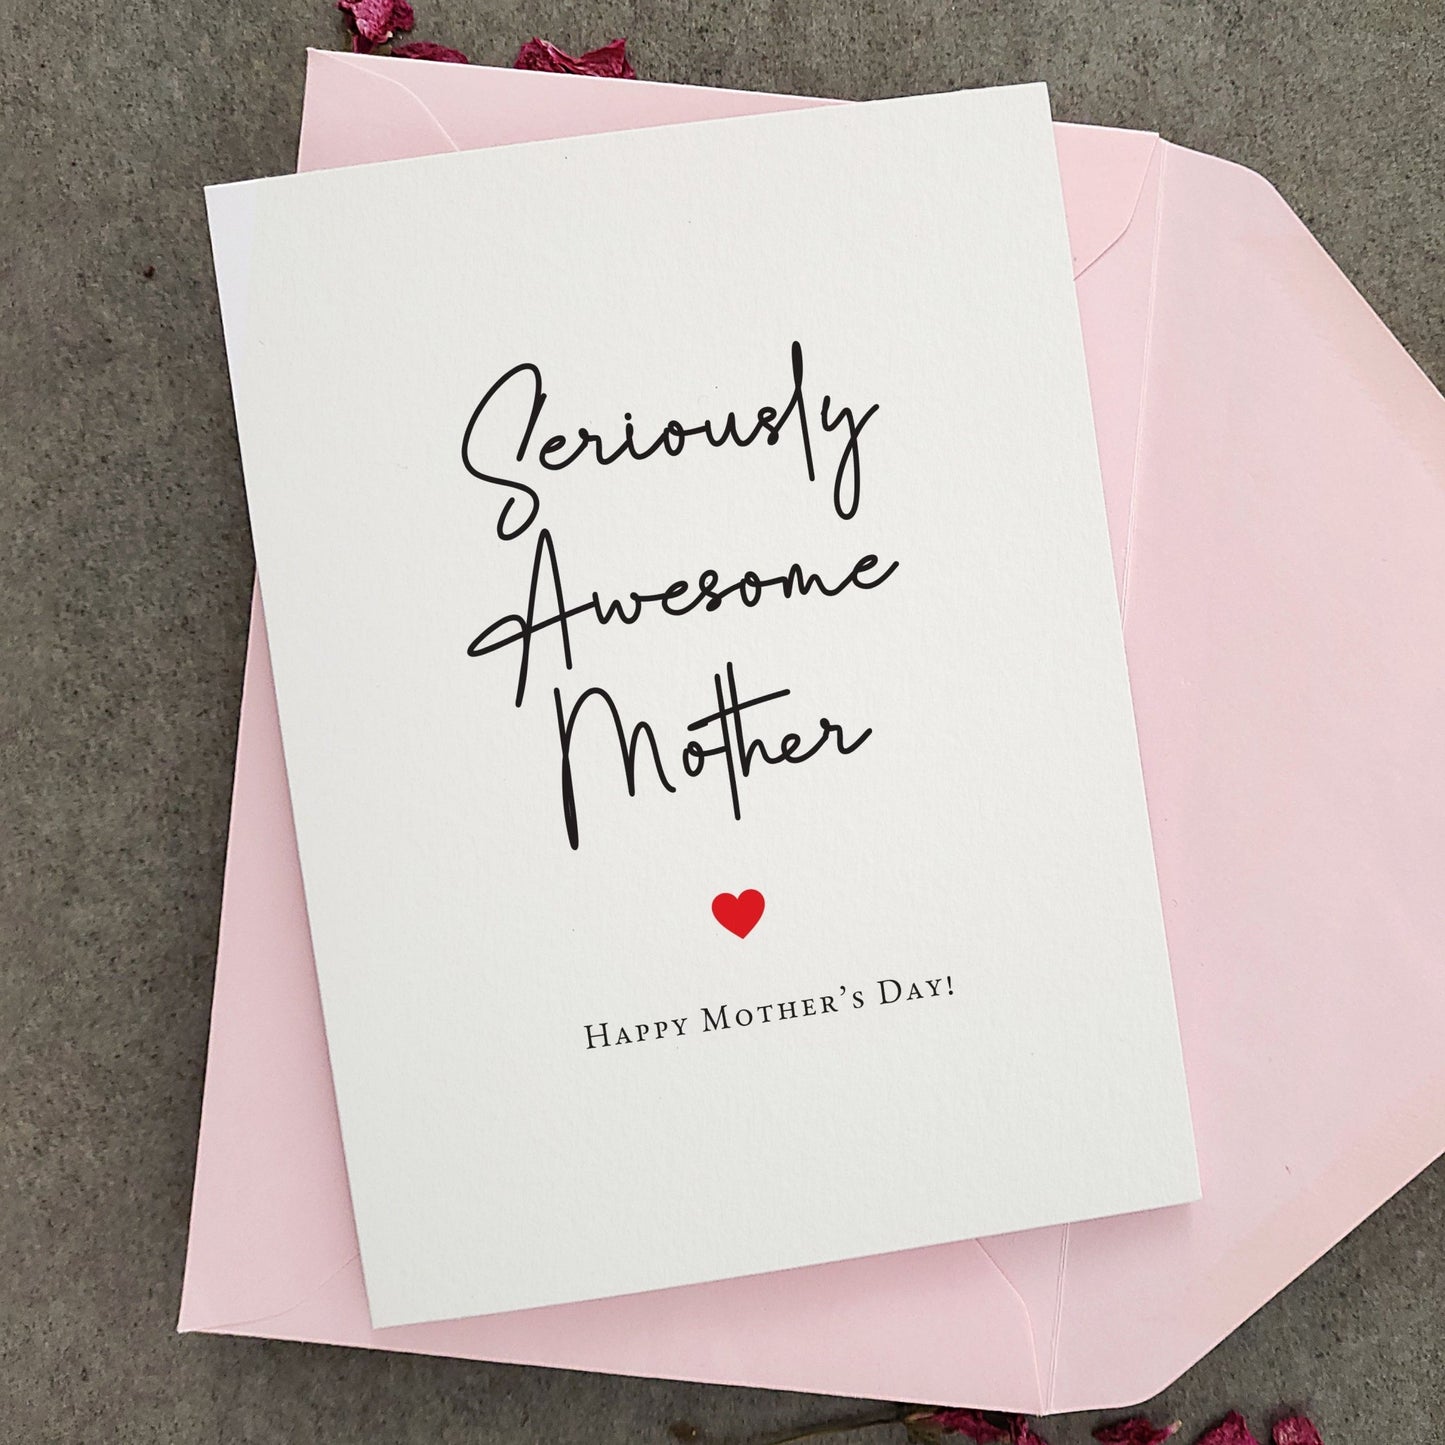 Seriously
Awesome
Mother
Happy Mother's Day!